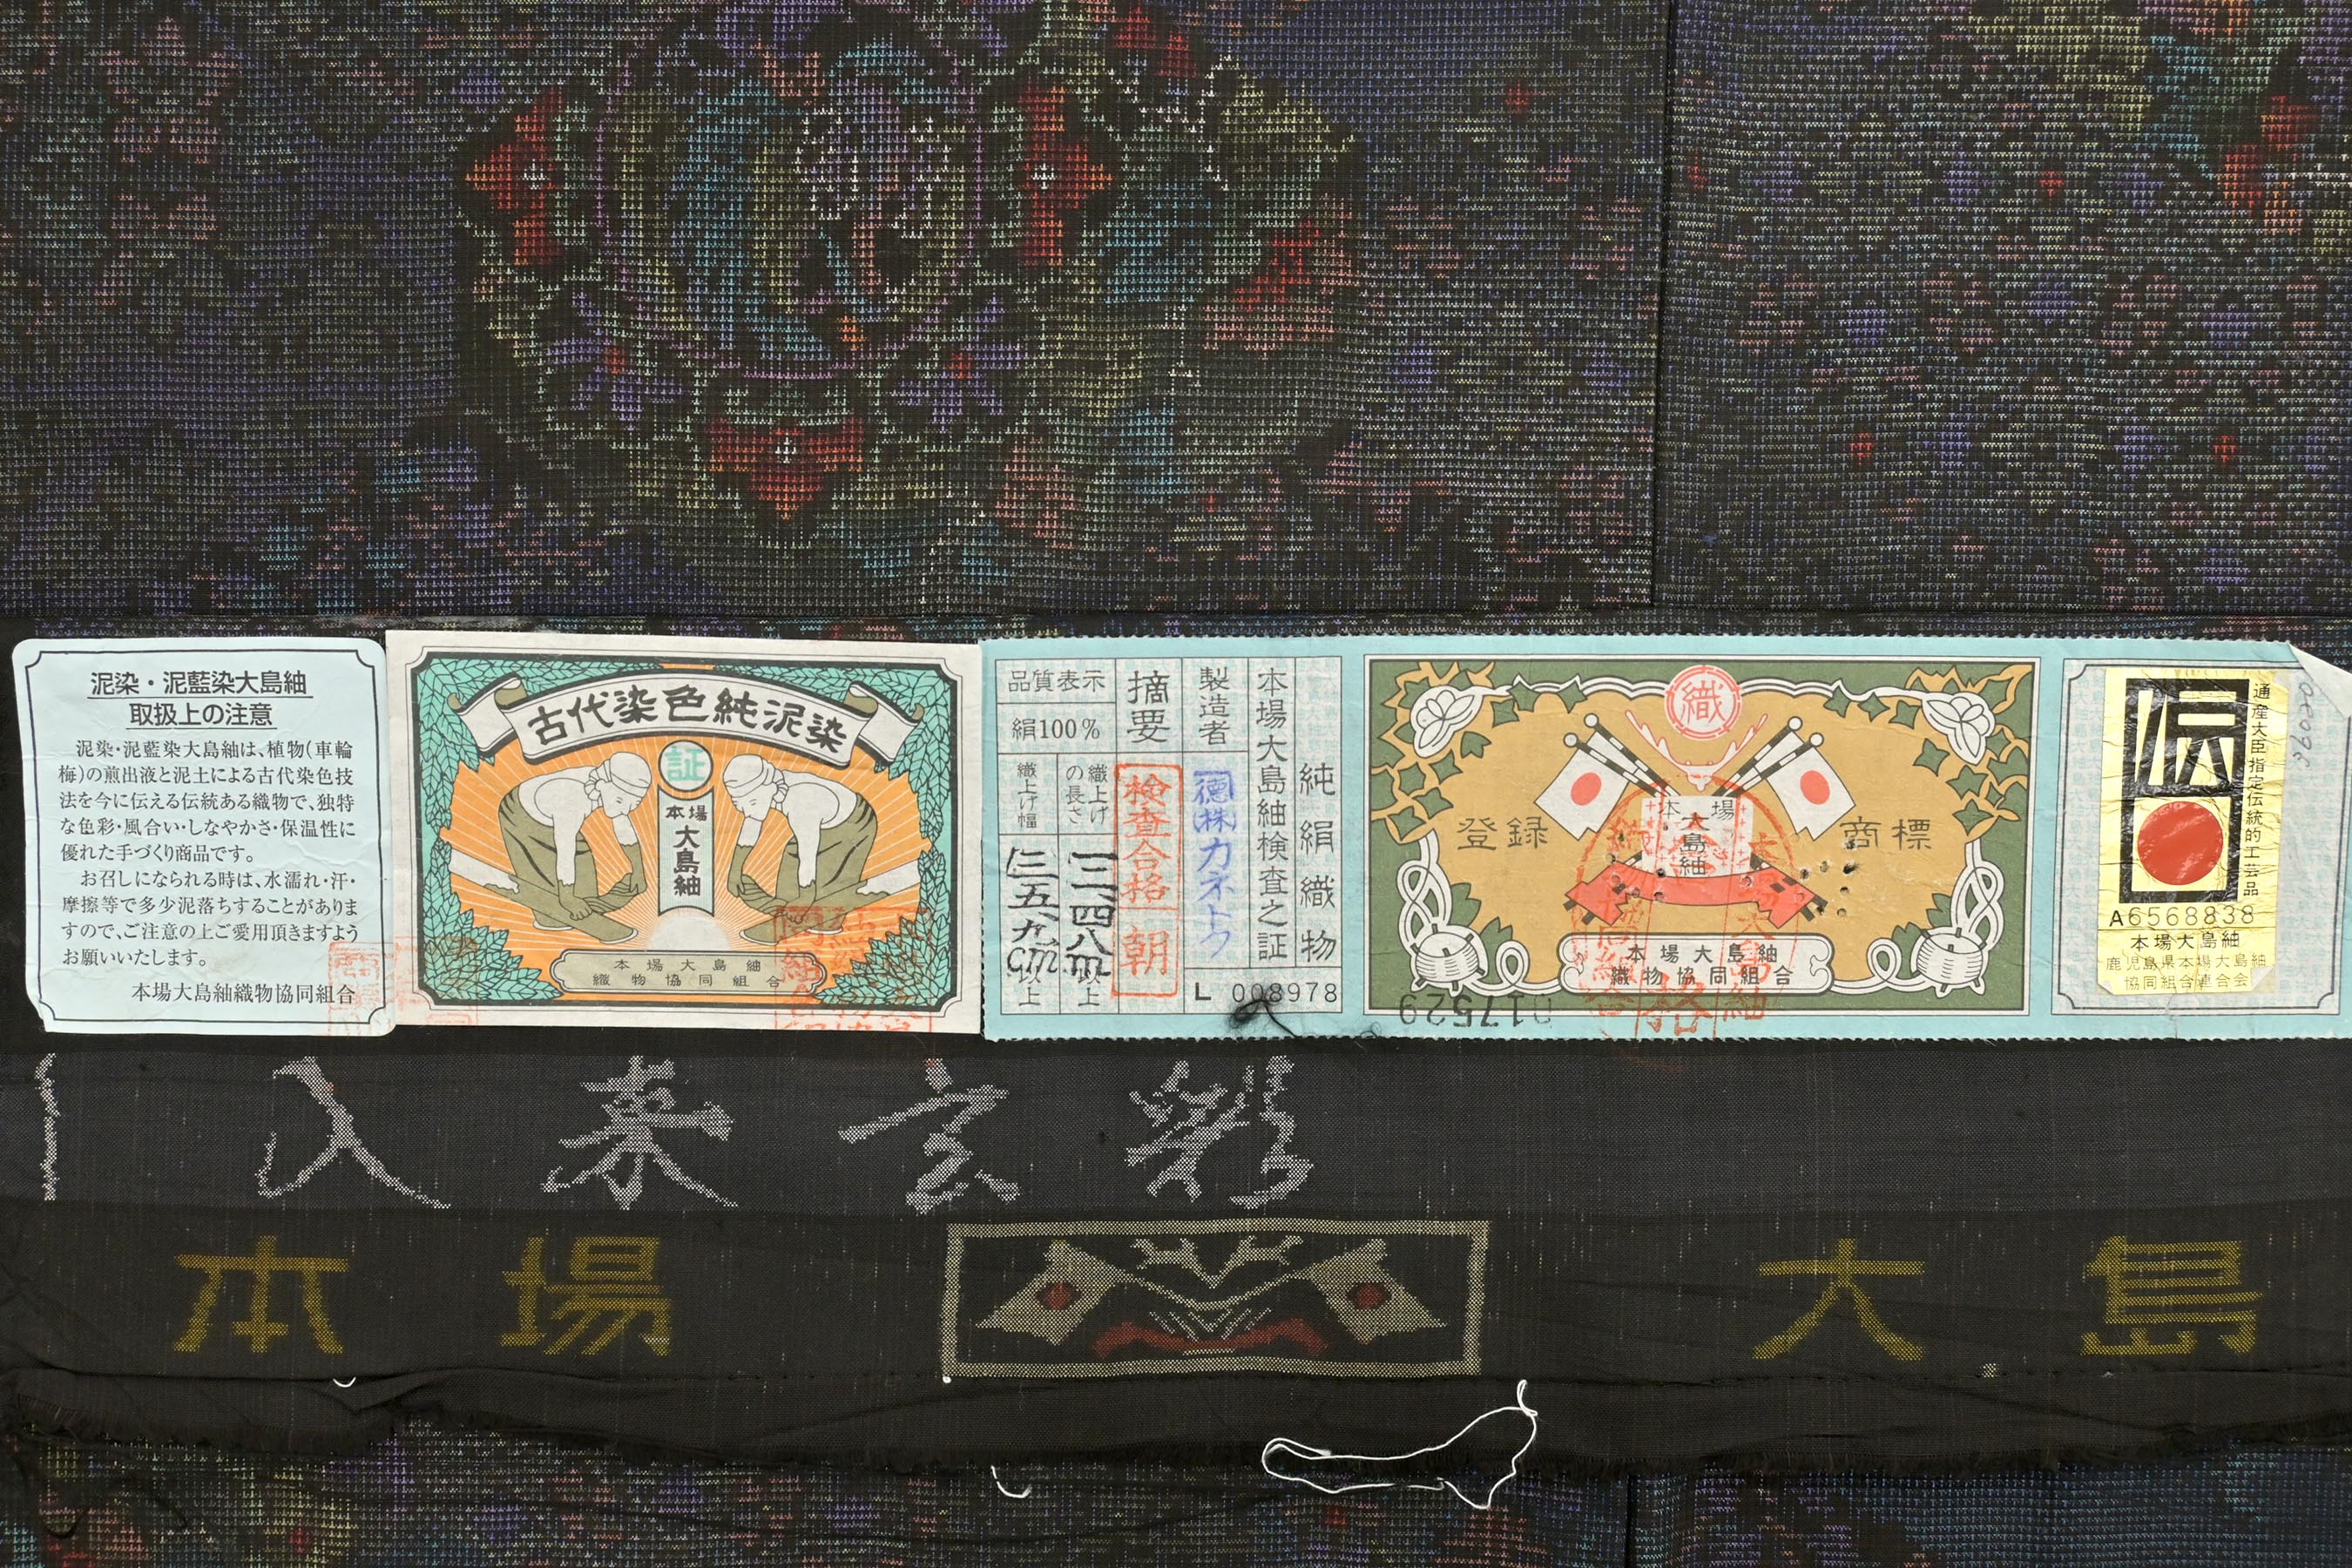 泥染・泥藍染大島紬
取扱上の注意
泥染・泥藍染大島紬は、植物(車輪
梅)の煎出液と泥土による古代染色技
法を今に伝える伝統ある織物で、独特
な色彩・風合い・しなやかさ・保温性に
優れた手づくり商品です。
お召しになられる時は、水濡れ・汗・
摩擦等で多少泥落ちすることがありま
すので、ご注意の上ご愛用頂きますよう
お願いいたします。
本場大島紬織物協同組合
古代染色純泥染
証
本場
大島紬
本場大島紬
織物協同組合
純絹織物
本場大島紬検査之証
製造者
徳(株)カネトク
L 008978
摘要
検査合格
朝
品質表示
絹100%
織上げ
の長さ
一二、四八m以上
織上げ幅
三五、九cm以上
織
登録
商標
本場
大島紬
本場大島紬
織物協同組合
017529
伝
通産大臣指定伝統的工芸品
A6568838
本場大島紬
鹿児島県本場大島紬
協同組合連合会
36020
入来玄彩
本場
大島